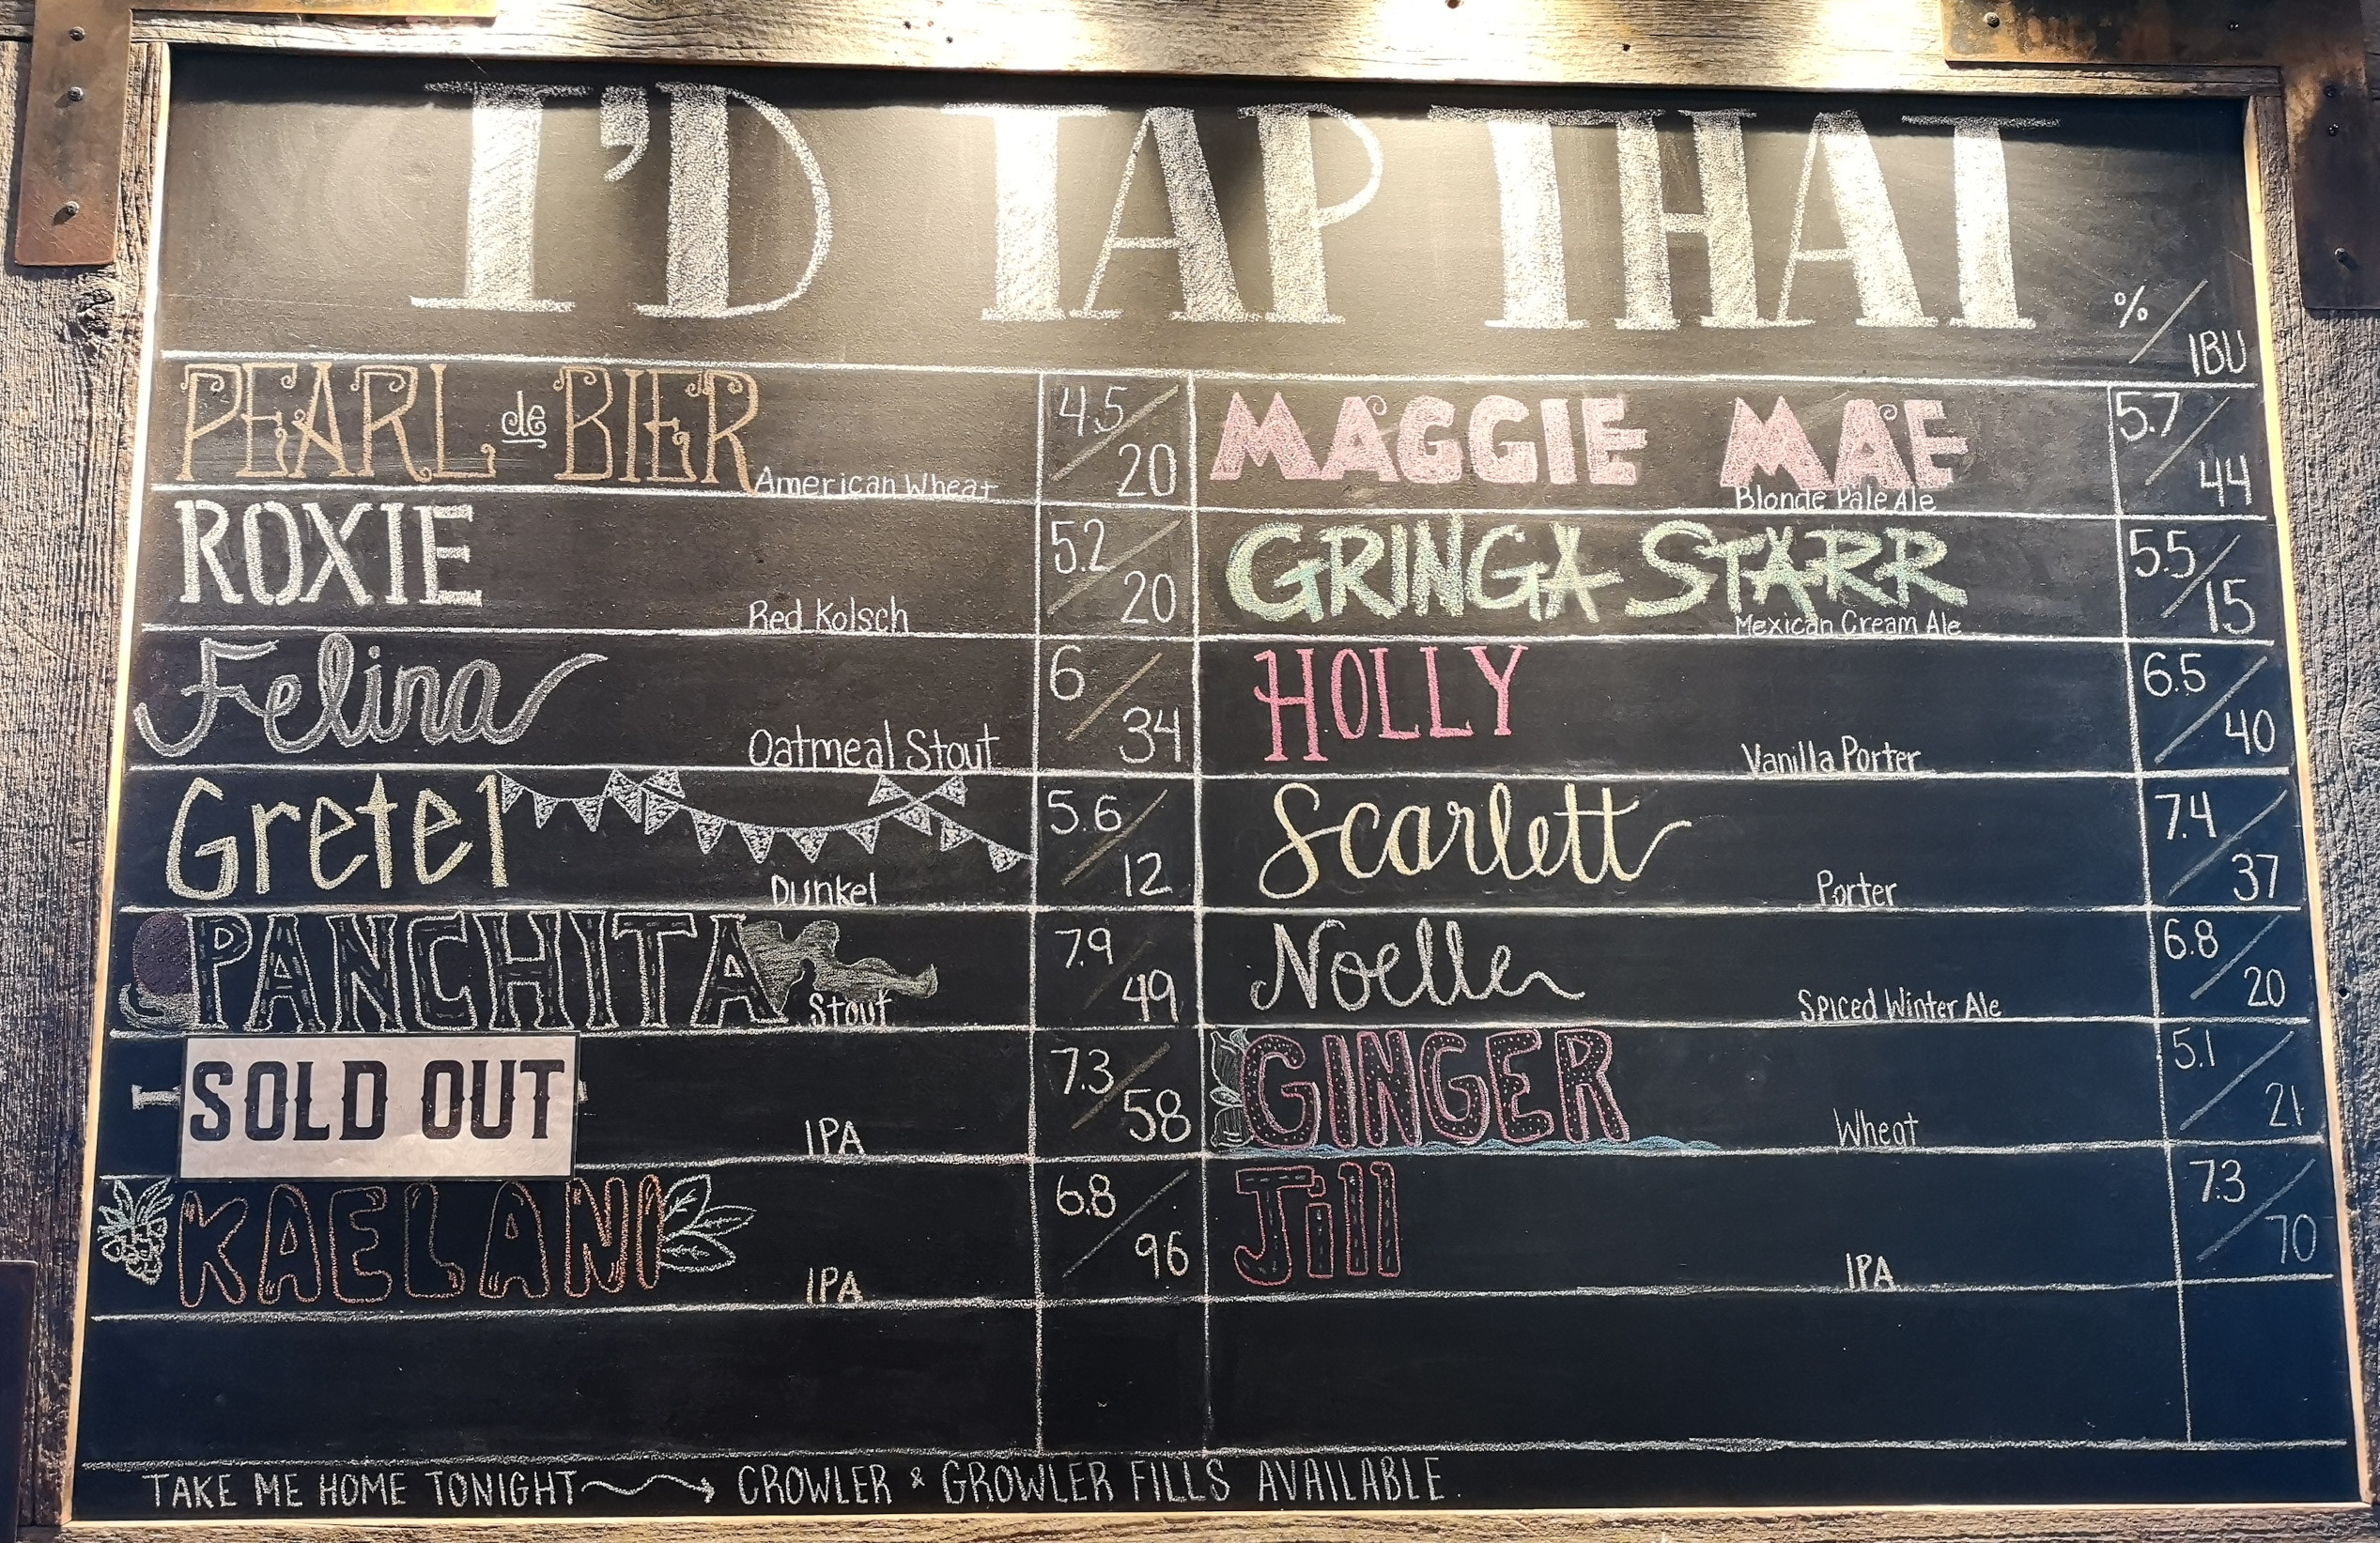 I'D TAP THAT
%/IBU
PEARL de BIER
American Wheat
4.5/20
ROXIE
Red Kolsch
5.2/20
Felina
Oatmeal Stout
6/34
Gretel
Dunkel
5.6/12
PANCHITA
Stout
7.9/49
SOLD OUT
IPA
7.3/58
KAELANI
IPA
6.8/96
MAGGIE MAE
Blonde Pale Ale
5.7/44
GRINGA STARR
Mexican Cream Ale
5.5/15
HOLLY
Vanilla Porter
6.5/40
Scarlett
Porter
7.4/37
Noelle
Spiced Winter Ale
6.8/20
GINGER
Wheat
5.1/21
Jill
IPA
7.3/70
TAKE ME HOME TONIGHT → CROWLER & GROWLER FILLS AVAILABLE.